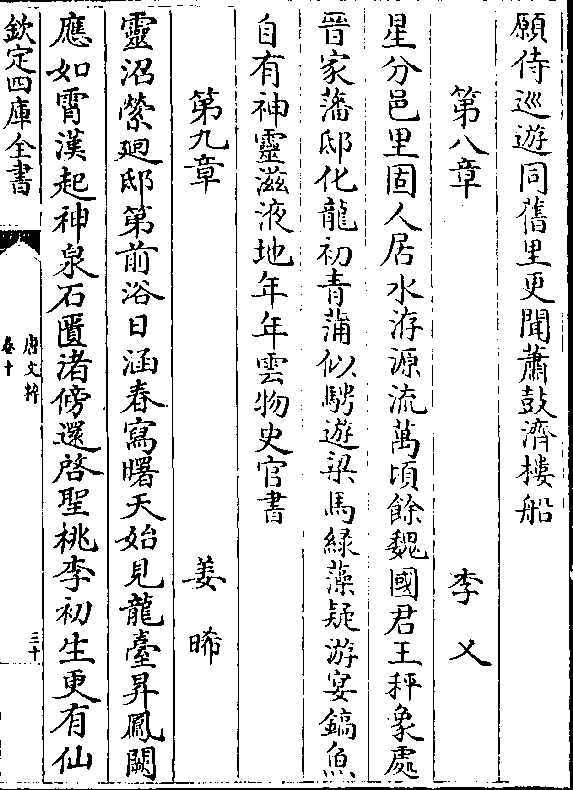 願侍巡遊同舊里更聞蕭鼓濟樓船
第八章 李乂
星分邑里固人居水洊源流萬頃餘魏國君王稱象處
晉家藩邸化龍初青蒲似騁遊梁馬緑藻疑游宴鎬魚
自有神靈滋液地年年雲物史官書
第九章 姜晞
靈沼縈廻邸第前浴日涵春寫曙天始見龍臺昇鳳闕
應如霄漢起神泉石匱渚傍還啓聖桃李初生更有仙
欽定四庫全書
唐文粹
卷十
三十